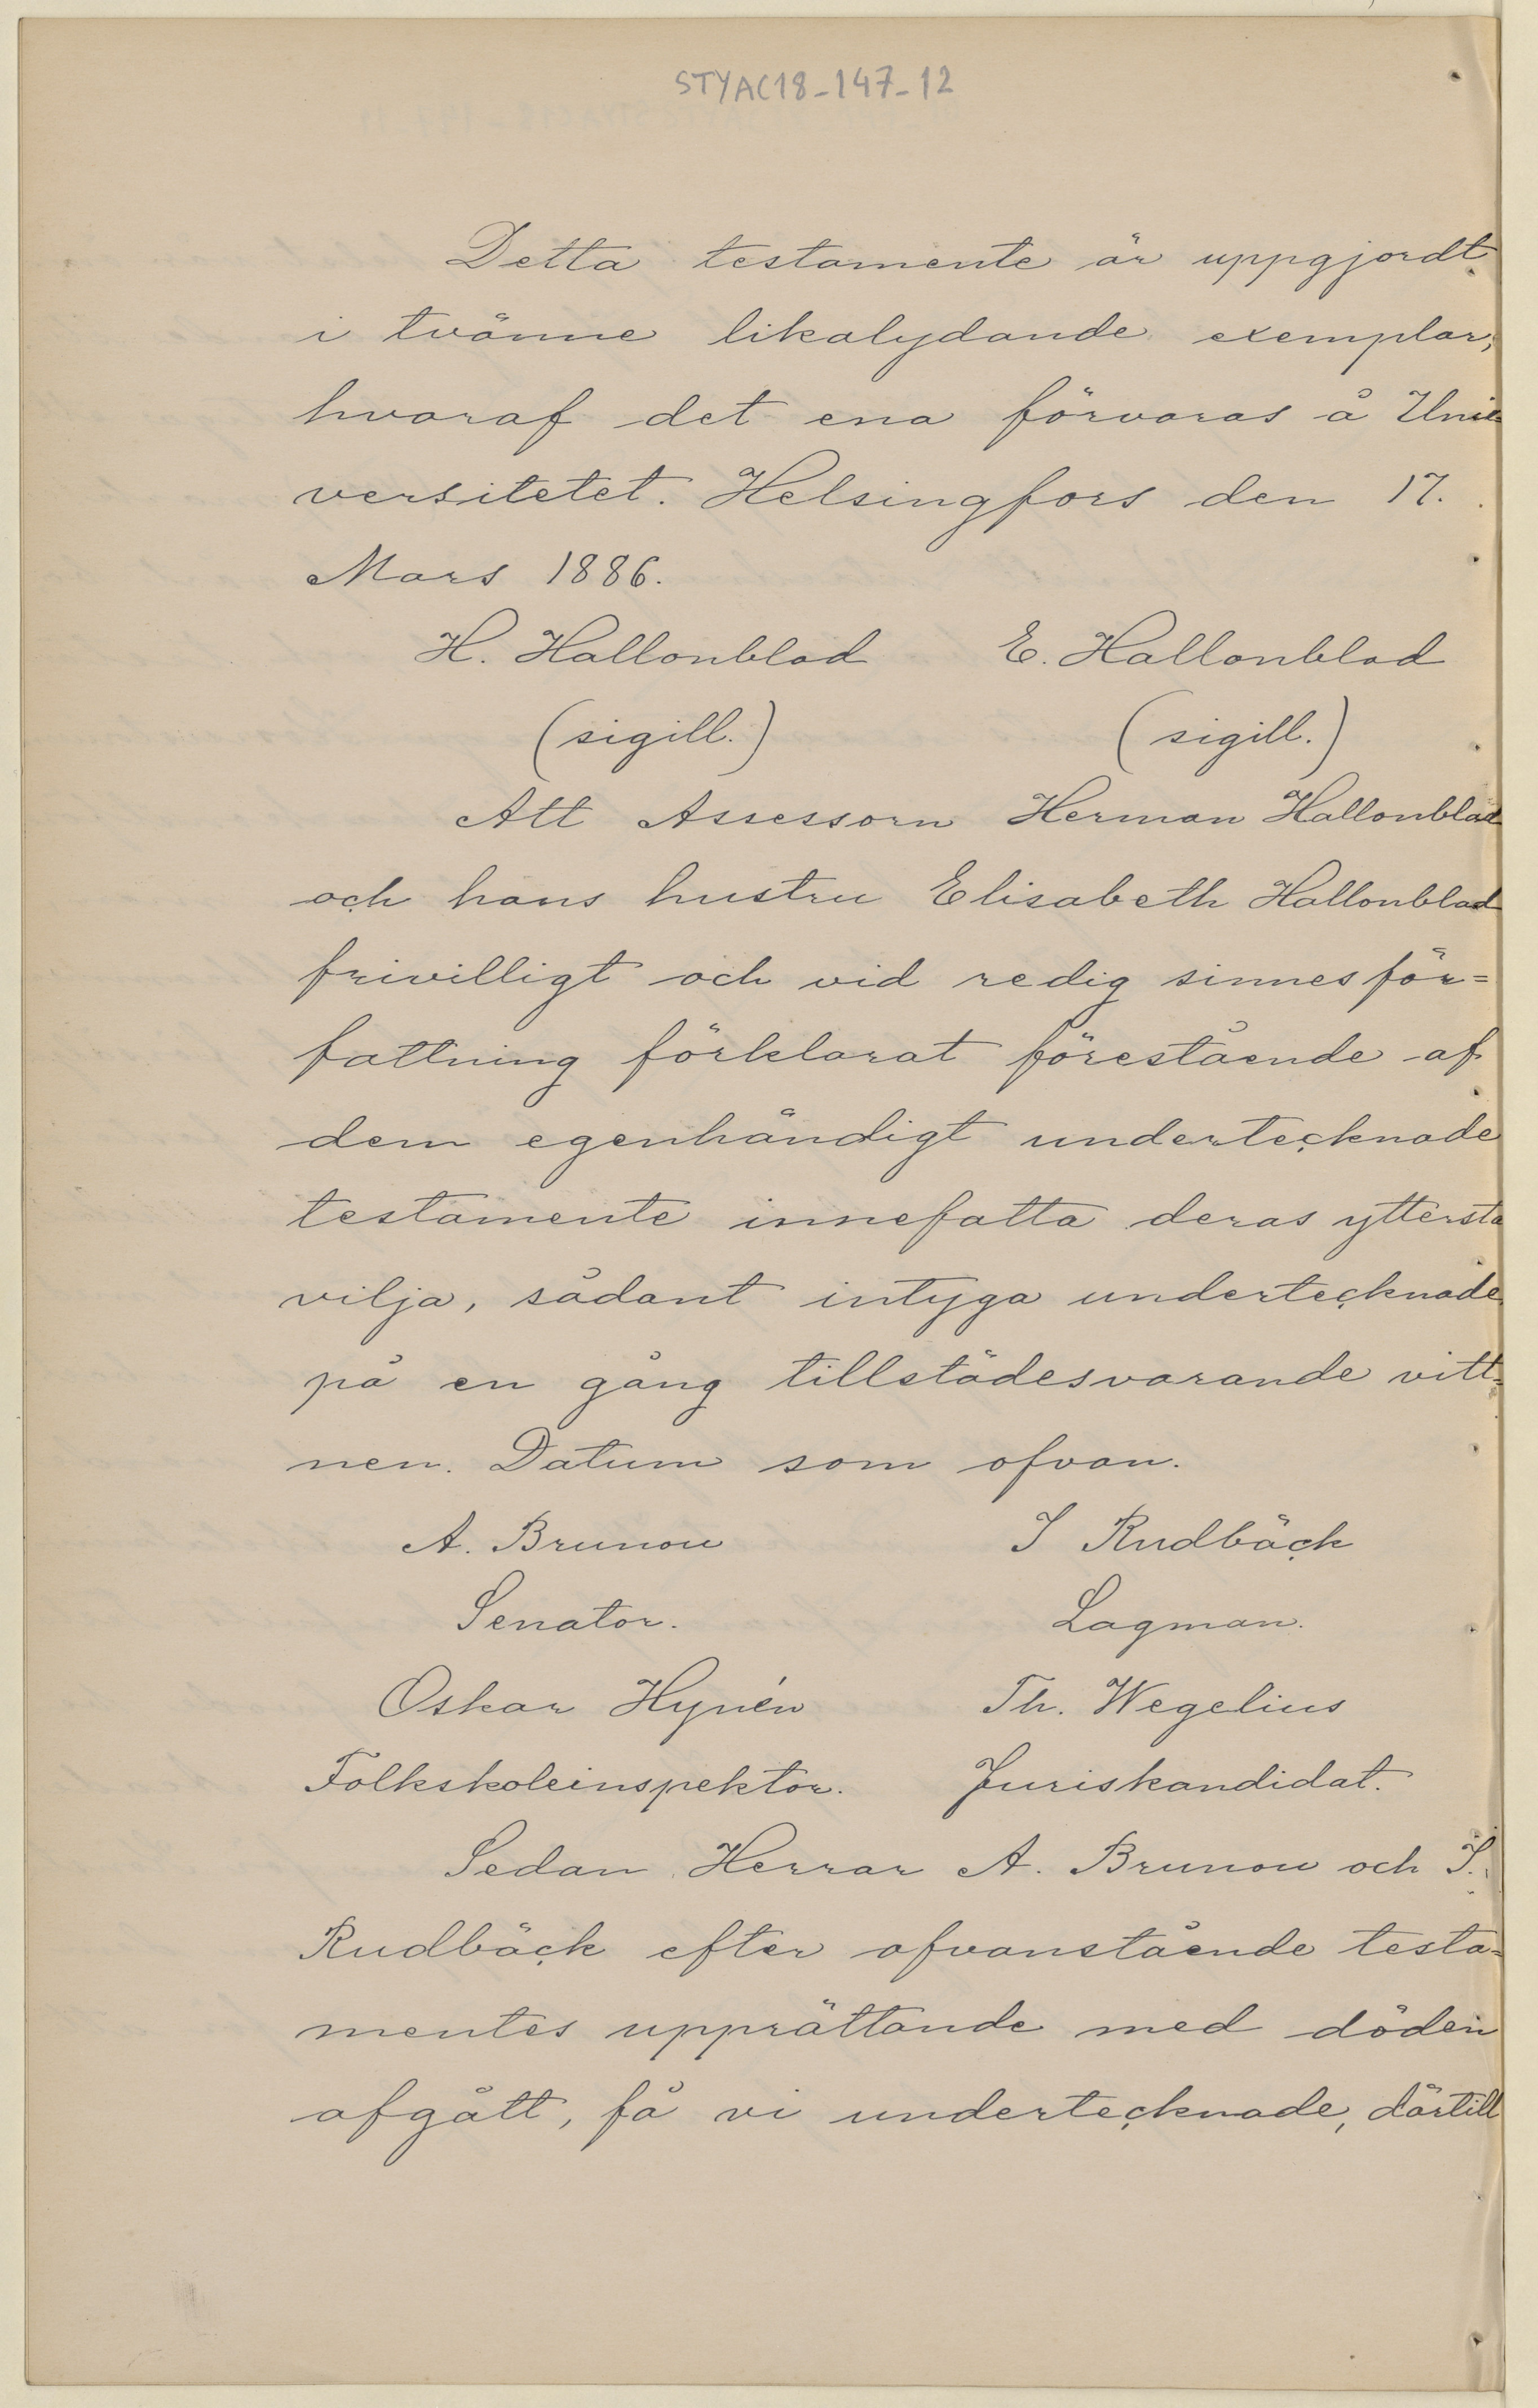 STYAC18-147-12
Detta testamente är uppgjordt
i tvänne likalydande exemplar,
hvaraf det ena förvaras å Uni-
versitetet. Helsingfors den 17.
Mars 1886.
H. Hallonblad E. Hallonblad
(sigill.) (sigill.)
Att Assessorn Herman Hallonblad
och hans hustru Elisabeth Hallonblad
frivilligt och vid redig sinnesför=
fattning förklarat förestående af
dem egenhändigt undertecknade
testamente innefatta deras yttersta
vilja, sådant intyga undertecknade
på en gång tillstädesvarande vitt=
nen. Datum som ofvan.
A. Brunou I Rudbäck
Senator. Lagman.
Oskar Hynén Th. Wegelius
Folkskoleinspektor. Juriskandidat.
Sedan Herrar A. Brunou och I.
Rudbäck efter ofvanstående testa=
mentes upprättande med döden
afgått, få vi undertecknade, därtill